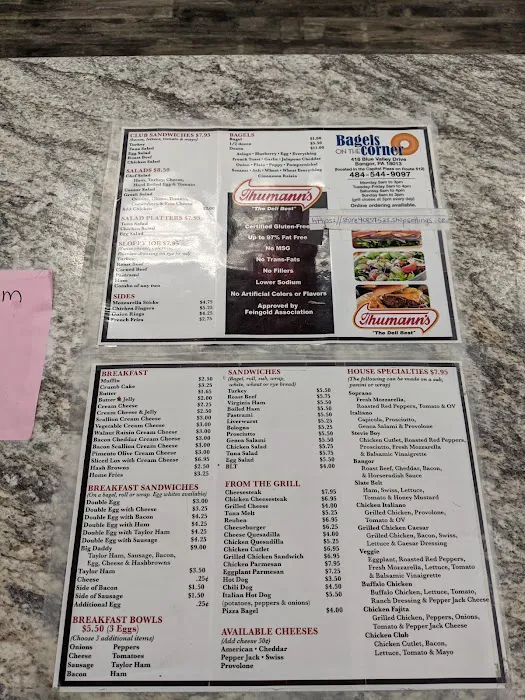 CLUB SANDWICHES $7.95
Turkey
Tuna Salad
Egg Salad
Roast Beef
Chicken Salad
SALADS $8.50
Chef Salad
Ham, Turkey, Cheese,
Hard Boiled Egg & Tomato
Caesar Salad
Greek Salad
Add Chicken
SALAD PLATTERS $7.95
Tuna Salad
Chicken Salad
Egg Salad
SLOPPY JOE $7.95
Turkey
Roast Beef
Corned Beef
Pastrami
Ham
Combo of any two
SIDES
Mozzarella Sticks $4.75
Chicken Fingers $5.25
Onion Rings $4.25
French Fries $2.75
BAGELS
Bagel $1.00
1/2 dozen $5.50
Dozen $11.00
Asiago • Blueberry • Egg • Everything
French Toast • Garlic • Jalapeno Cheddar
Onion • Plain • Poppy • Pumpernickel
Sesame • Salt • Wheat • Wheat Everything
Cinnamon Raisin
Thumann's
"The Deli Best"
Certified Gluten-Free
Up to 97% Fat Free
No MSG
No Trans-Fats
No Fillers
Lower Sodium
No Artificial Colors or Flavors
Approved by
Feingold Association
Bagels
ON THE Corner
418 Blue Valley Drive
Bangor, PA 18013
(located in the Capitol Plaza on Route 512)
484-544-9097
Monday 5am to 3pm
Tuesday-Friday 5am to 4pm
Saturday 6am to 4pm
Sunday 6am to 3pm
(grill closes at 3pm every day)
Online ordering available.
Thumann's
"The Deli Best"
m
BREAKFAST
Muffin $2.50
Crumb Cake $3.25
Butter $1.65
Butter & Jelly $2.00
Cream Cheese $2.25
Cream Cheese & Jelly $2.50
Scallion Cream Cheese $3.00
Vegetable Cream Cheese $3.00
Walnut Raisin Cream Cheese $3.00
Bacon Cheddar Cream Cheese $3.00
Bacon Scallion Cream Cheese $3.00
Pimento Olive Cream Cheese $3.00
Sliced Lox with Cream Cheese $6.95
Hash Browns $2.50
Home Fries $3.25
BREAKFAST SANDWICHES
(On a bagel, roll or wrap. Egg whites available)
Double Egg $3.00
Double Egg with Cheese $3.25
Double Egg with Bacon $4.25
Double Egg with Ham $4.25
Double Egg with Taylor Ham $4.25
Double Egg with Sausage $4.25
Big Daddy $9.00
Taylor Ham, Sausage, Bacon,
Egg, Cheese & Hashbrowns
Taylor Ham $3.50
Cheese .25¢
Side of Bacon $1.50
Side of Sausage $1.50
Additional Egg .25¢
BREAKFAST BOWLS
$5.50 (3 Eggs)
(Choose 3 additional items)
Onions Peppers
Cheese Tomatoes
Sausage Taylor Ham
Bacon Ham
SANDWICHES
(Bagel, roll, sub, wrap,
white, wheat or rye bread)
Turkey $5.50
Roast Beef $5.75
Virginia Ham $5.50
Boiled Ham $5.50
Pastrami $5.50
Liverwurst $5.25
Bologna $5.25
Prosciutto $5.50
Genoa Salami $5.50
Chicken Salad $5.50
Tuna Salad $5.75
Egg Salad $5.50
BLT $4.00
FROM THE GRILL
Cheesesteak $7.95
Chicken Cheesesteak $6.95
Grilled Cheese $4.00
Tuna Melt $5.25
Reuben $6.95
Cheeseburger $6.25
Cheese Quesadilla $4.00
Chicken Quesadilla $5.25
Chicken Cutlet $6.95
Grilled Chicken Sandwich $6.95
Chicken Parmesan $7.95
Eggplant Parmesan $7.25
Hot Dog $3.50
Chili Dog $4.50
Italian Hot Dog $5.50
(potatoes, peppers & onions)
Pizza Bagel $4.00
AVAILABLE CHEESES
(Add cheese 50¢)
American • Cheddar
Pepper Jack • Swiss
Provolone
HOUSE SPECIALTIES $7.95
(The following can be made on a sub,
panini or wrap)
Soprano
Fresh Mozzarella,
Roasted Red Peppers, Tomato & OV
Italiano
Capicola, Prosciutto,
Genoa Salami & Provolone
Stevie Boy
Chicken Cutlet, Roasted Red Peppers,
Prosciutto, Fresh Mozzarella
& Balsamic Vinaigrette
Bangor
Roast Beef, Cheddar, Bacon,
& Horseradish Sauce
Slate Belt
Ham, Swiss, Lettuce,
Tomato & Honey Mustard
Chicken Italiano
Grilled Chicken, Provolone,
Tomato & OV
Grilled Chicken Caesar
Grilled Chicken, Bacon, Swiss,
Lettuce & Caesar Dressing
Veggie
Eggplant, Roasted Red Peppers,
Fresh Mozzarella, Lettuce, Tomato
& Balsamic Vinaigrette
Buffalo Chicken
Buffalo Chicken, Lettuce, Tomato,
Ranch Dressing & Pepper Jack Cheese
Chicken Fajita
Grilled Chicken, Peppers, Onions,
Tomato & Pepper Jack Cheese
Chicken Club
Chicken Cutlet, Bacon,
Lettuce, Tomato & Mayo